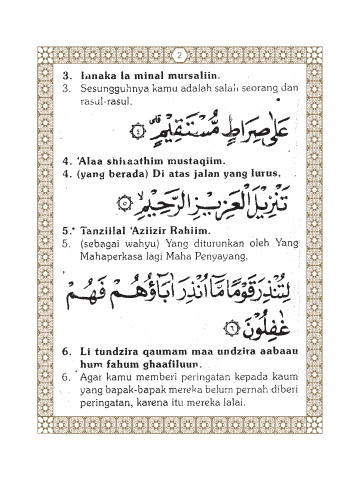 2
3. Innaka la minal mursaliin.
3. Sesungguhnya kamu adalah salah seorang dan
rasul-rasul.
عَلَىٰ صِرَاطٍ مُّسْتَقِيمٍ ۙ ﴿٤﴾
4. 'Alaa shiraathim mustaqiim.
4. (yang berada) Di atas jalan yang lurus,
تَنْزِيلَ الْعَزِيزِ الرَّحِيمِ ۙ ﴿٥﴾
5. Tanziilal 'Aziizir Rahiim.
5. (sebagai wahyu) Yang diturunkan oleh Yang
Mahaperkasa lagi Maha Penyayang,
لِتُنْذِرَ قَوْمًا مَّا أُنْذِرَ آبَاؤُهُمْ فَهُمْ
غٰفِلُونَ ﴿٦﴾
6. Li tundzira qaumam maa undzira aabaau
hum fahum ghaafiluun.
6. Agar kamu memberi peringatan kepada kaum
yang bapak-bapak mereka belum pernah diberi
peringatan, karena itu mereka lalai.